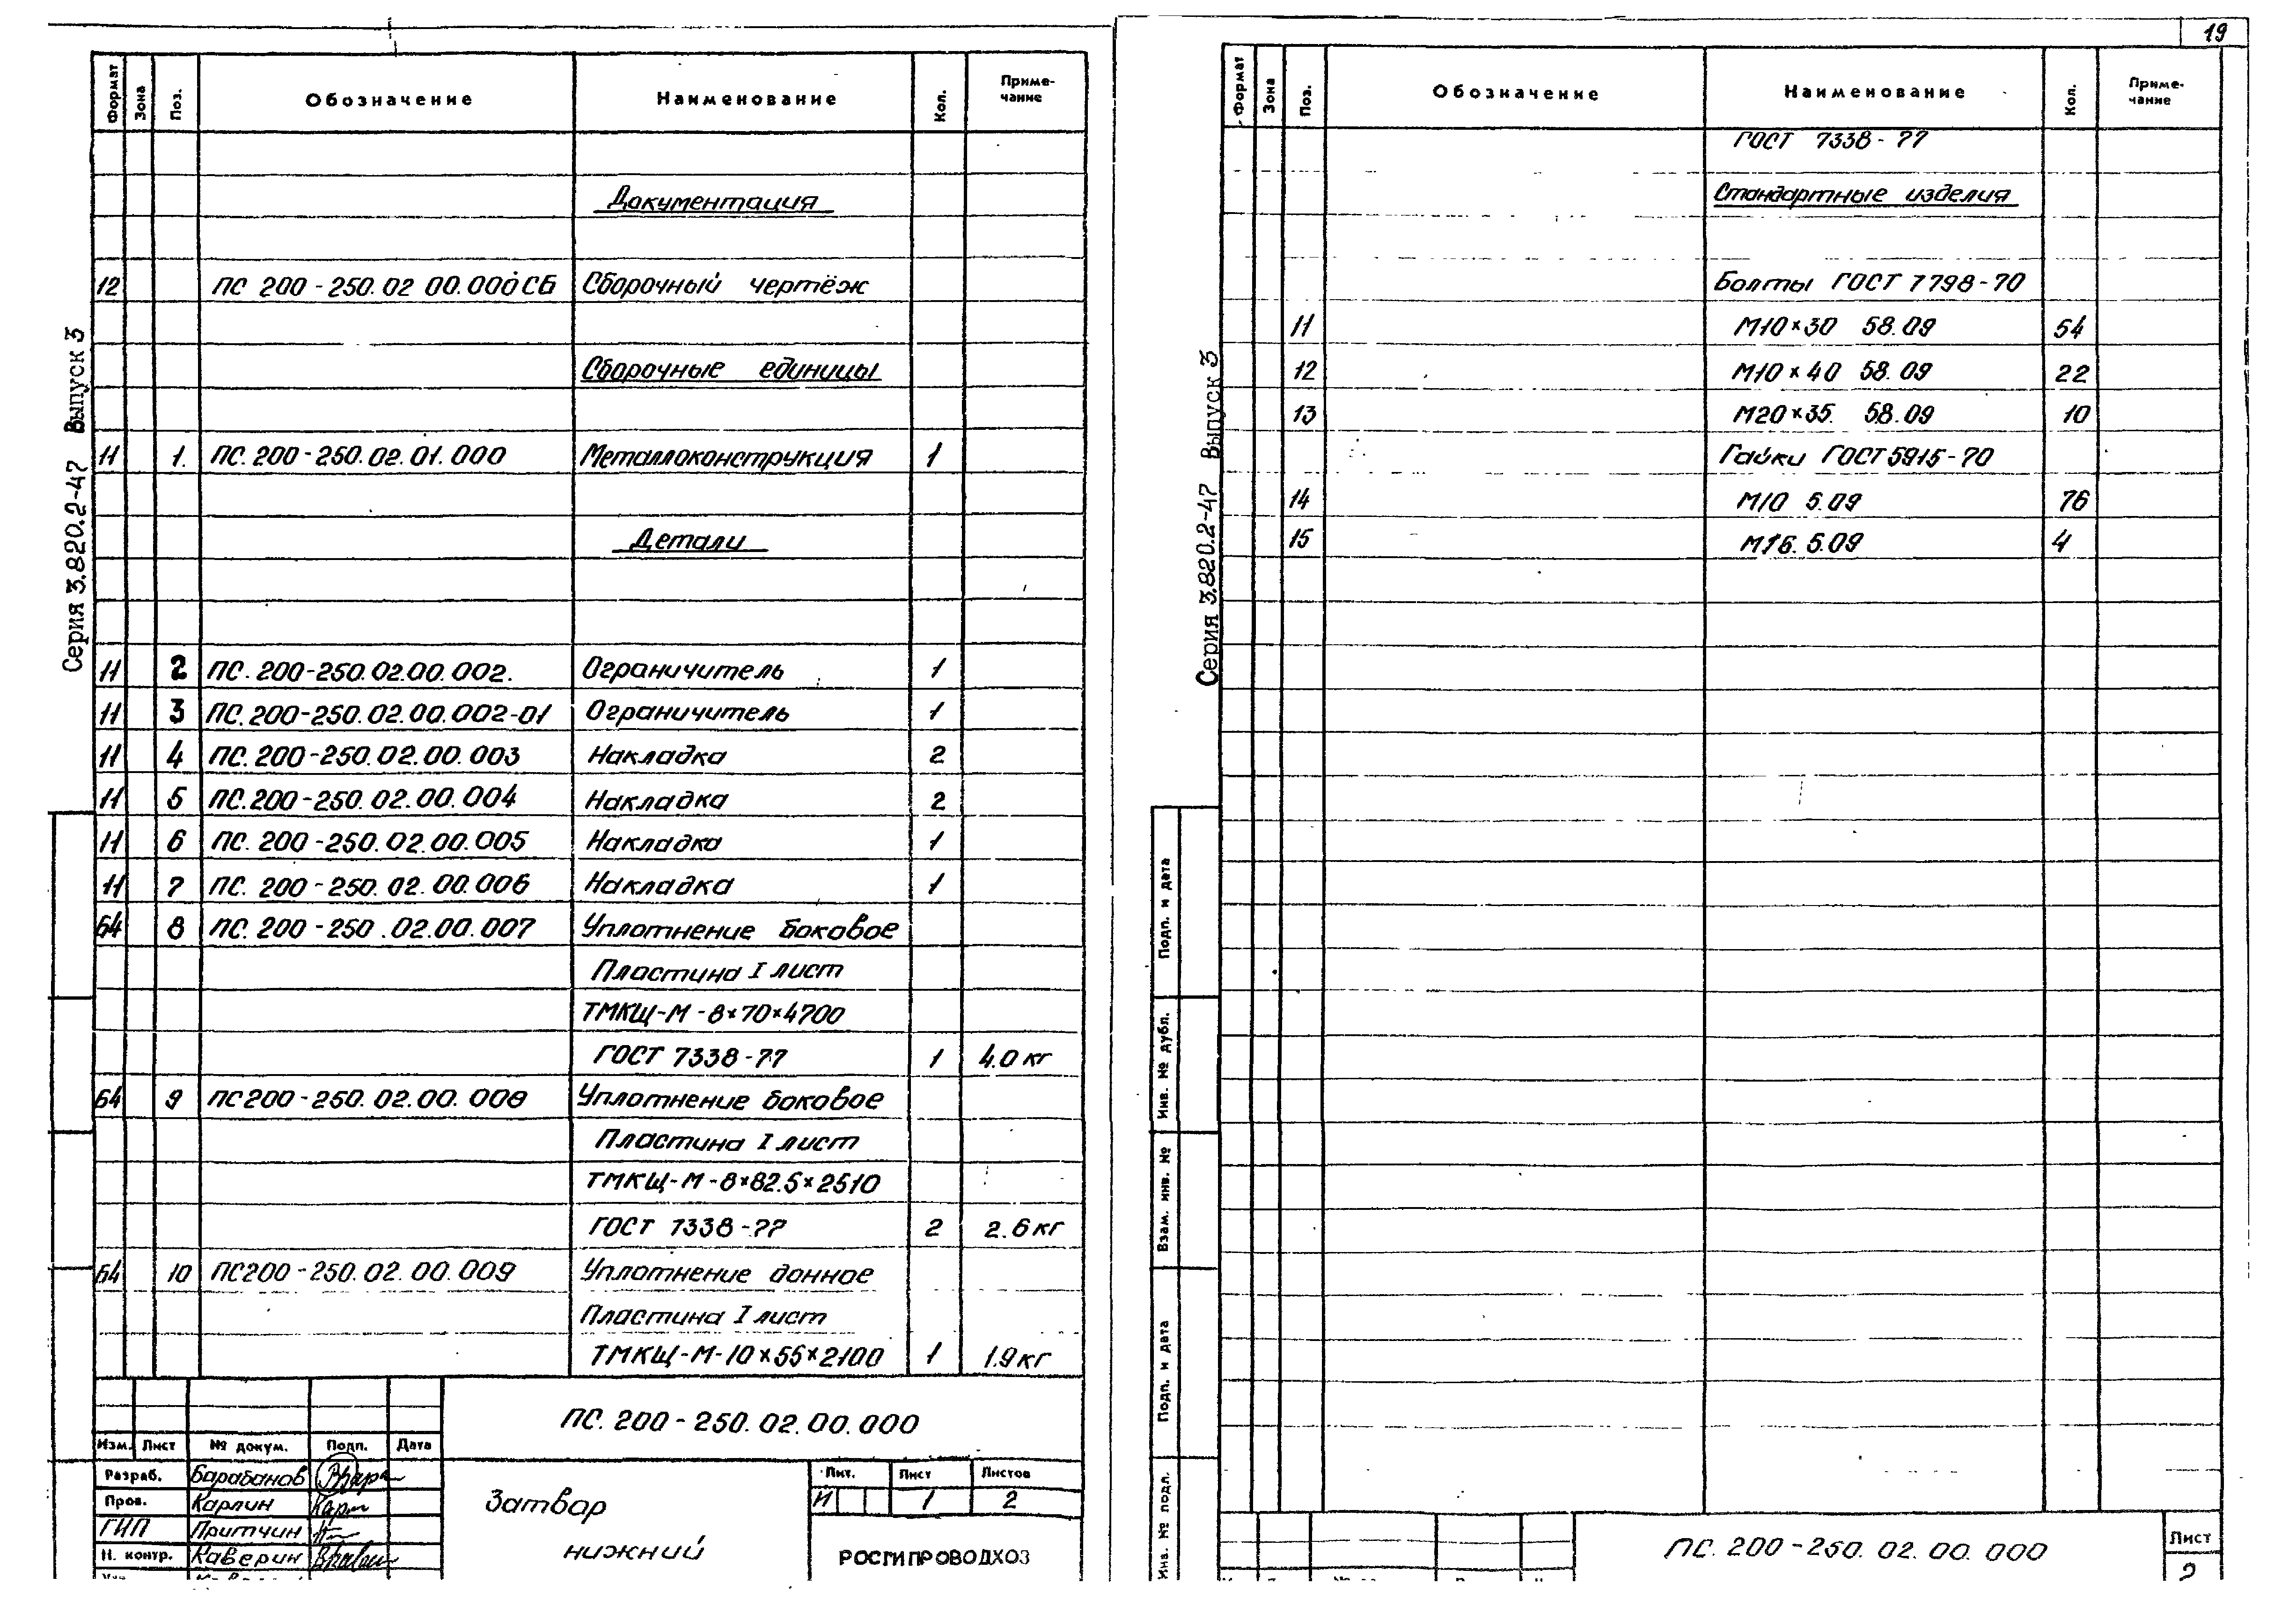 Серия 3.820.2-47 Выпуск 3
Формат Зона Поз. Обозначение Наименование Кол. Приме-
чание
Документация
12 ПС 200-250.02 00.000СБ Сборочный чертёж
Сборочные единицы
11 1. ПС.200-250.02.01.000 Металлоконструкция 1
Детали
11 2 ПС.200-250.02.00.002. Ограничитель 1
11 3 ПС.200-250.02.00.002-01 Ограничитель 1
11 4 ПС.200-250.02.00.003 Накладка 2
11 5 ПС.200-250.02.00.004 Накладка 2
11 6 ПС.200-250.02.00.005 Накладка 1
11 7 ПС.200-250.02.00.006 Накладка 1
Б4 8 ПС.200-250.02.00.007 Уплотнение боковое
Пластина I лист
ТМКЩ-М-8×70×4700
ГОСТ 7338-77 1 4.0 кг
Б4 9 ПС200-250.02.00.008 Уплотнение боковое
Пластина I лист
ТМКЩ-М-8×82.5×2510
ГОСТ 7338-77 2 2.6 кг
Б4 10 ПС200-250.02.00.009 Уплотнение донное
Пластина I лист
ТМКЩ-М-10×55×2100 1 1.9 кг
ПС.200-250.02.00.000
Изм. Лист № докум. Подп. Дата
Разраб. Барабанов
Пров. Карлин
ГИП Притчин
Н. контр. Каверин
Затвор
нижний
Лит. Лист Листов
И 1 2
РОСГИПРОВОДХОЗ
19
Серия 3.820.2-47 Выпуск 3
Формат Зона Поз. Обозначение Наименование Кол. Приме-
чание
ГОСТ 7338-77
Стандартные изделия
Болты ГОСТ 7798-70
11 М10×30 58.09 54
12 М10×40 58.09 22
13 М20×35. 58.09 10
Гайки ГОСТ 5915-70
14 М10 5.09 76
15 М16. 5.09 4
Подп. и дата
Инв. № дубл.
Взам. инв. №
Подп. и дата
Инв. № подл.
ПС.200-250.02.00.000
Лист
2